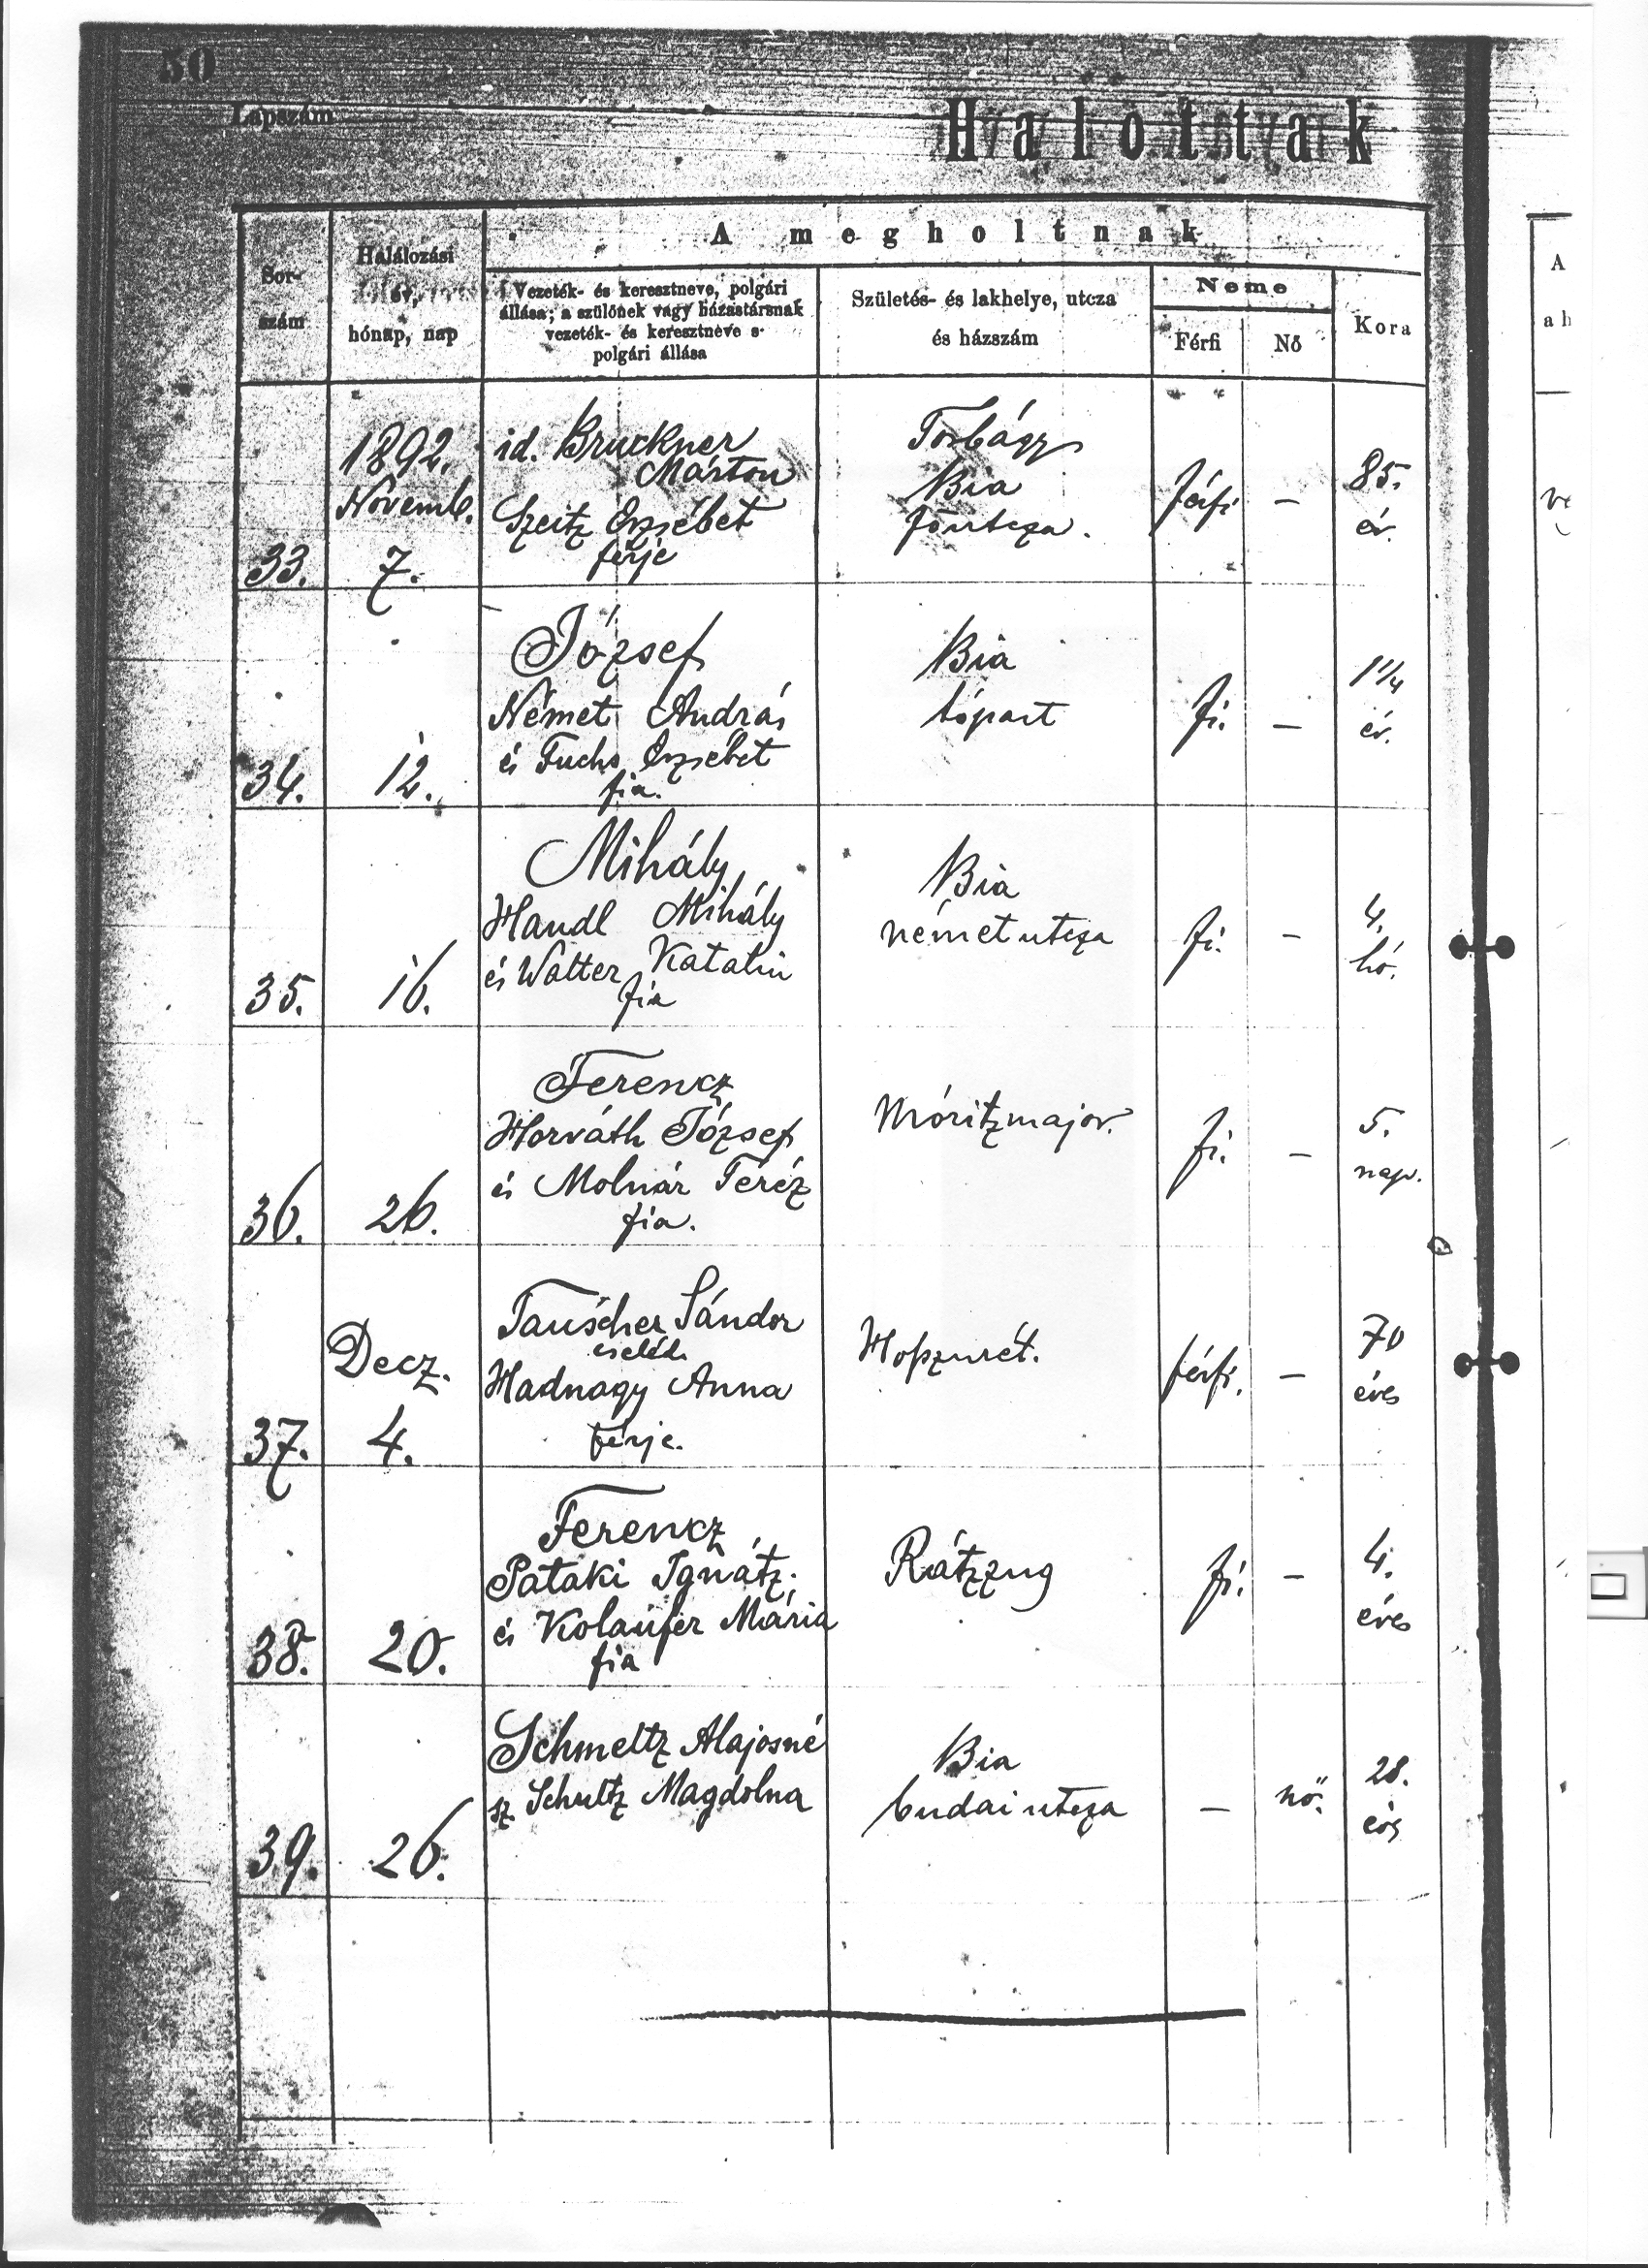 50
Lapszám
Halottak
Sor-
szám
Halálozási
év,
hónap, nap
A megholtnak
Vezeték- és keresztneve, polgári
állása; a szülőnek vagy házastársnak
vezeték- és keresztneve s
polgári állása
Születés- és lakhelye, utcza
és házszám
Neme
Férfi
Nő
Kora
A
a h
33.
1892.
Novemb.
7.
id. Bruckner
Márton
Szeitz Erzsébet
férje
Torbágy
Bia
főutcza.
férfi
–
85.
év.
34.
12.
József
Német András
és Fuchs Erzsébet
fia.
Bia
tópart
fi.
–
1 1/4
év.
35.
16.
Mihály
Handl Mihály
és Walter Katalin
fia
Bia
németutcza
fi.
–
4.
hó.
36.
26.
Ferencz
Horváth József
és Molnár Teréz
fia.
Móritzmajor.
fi.
–
5.
nap.
37.
Decz.
4.
Tauscher Sándor
cseléd
Hadnagy Anna
férje.
férfi.
–
70
éves
38.
20.
Ferencz
Pataki Ignátz
és Kolaufer Mária
fia
Rátzzug
fi.
–
4.
éves
39.
26.
Schmeltz Alajosné
sz. Schultz Magdolna
Bia
budaiutcza
–
nő.
28.